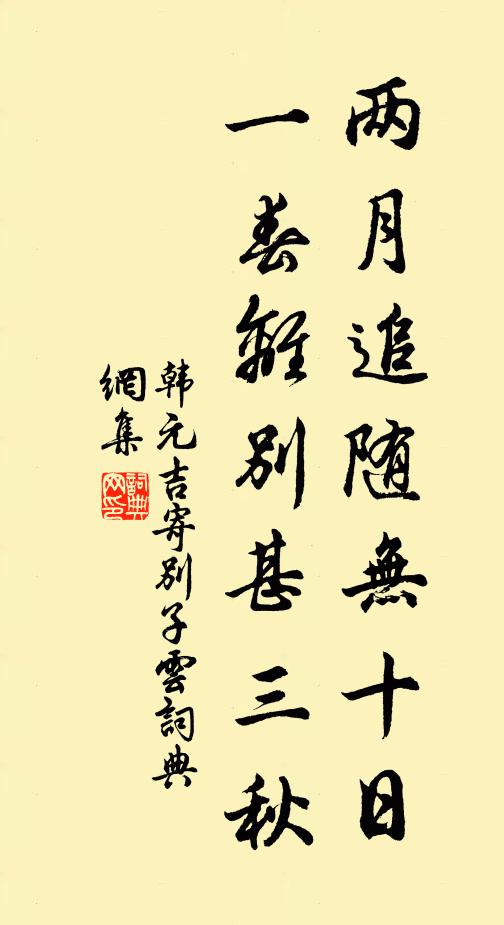 两月追随無十日
一春離别甚三秋
韩元吉寄别子雲詞典
網集
詞典
网印